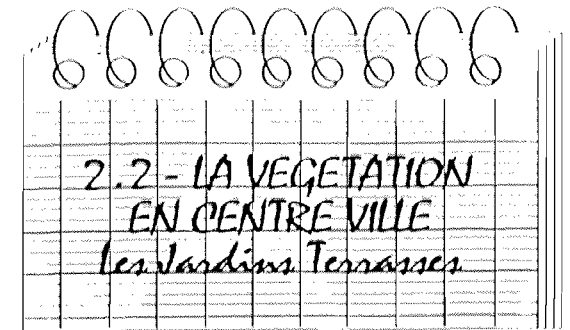 2.2 - LA VEGETATION
EN CENTRE VILLE
Les Jardins Terrasses